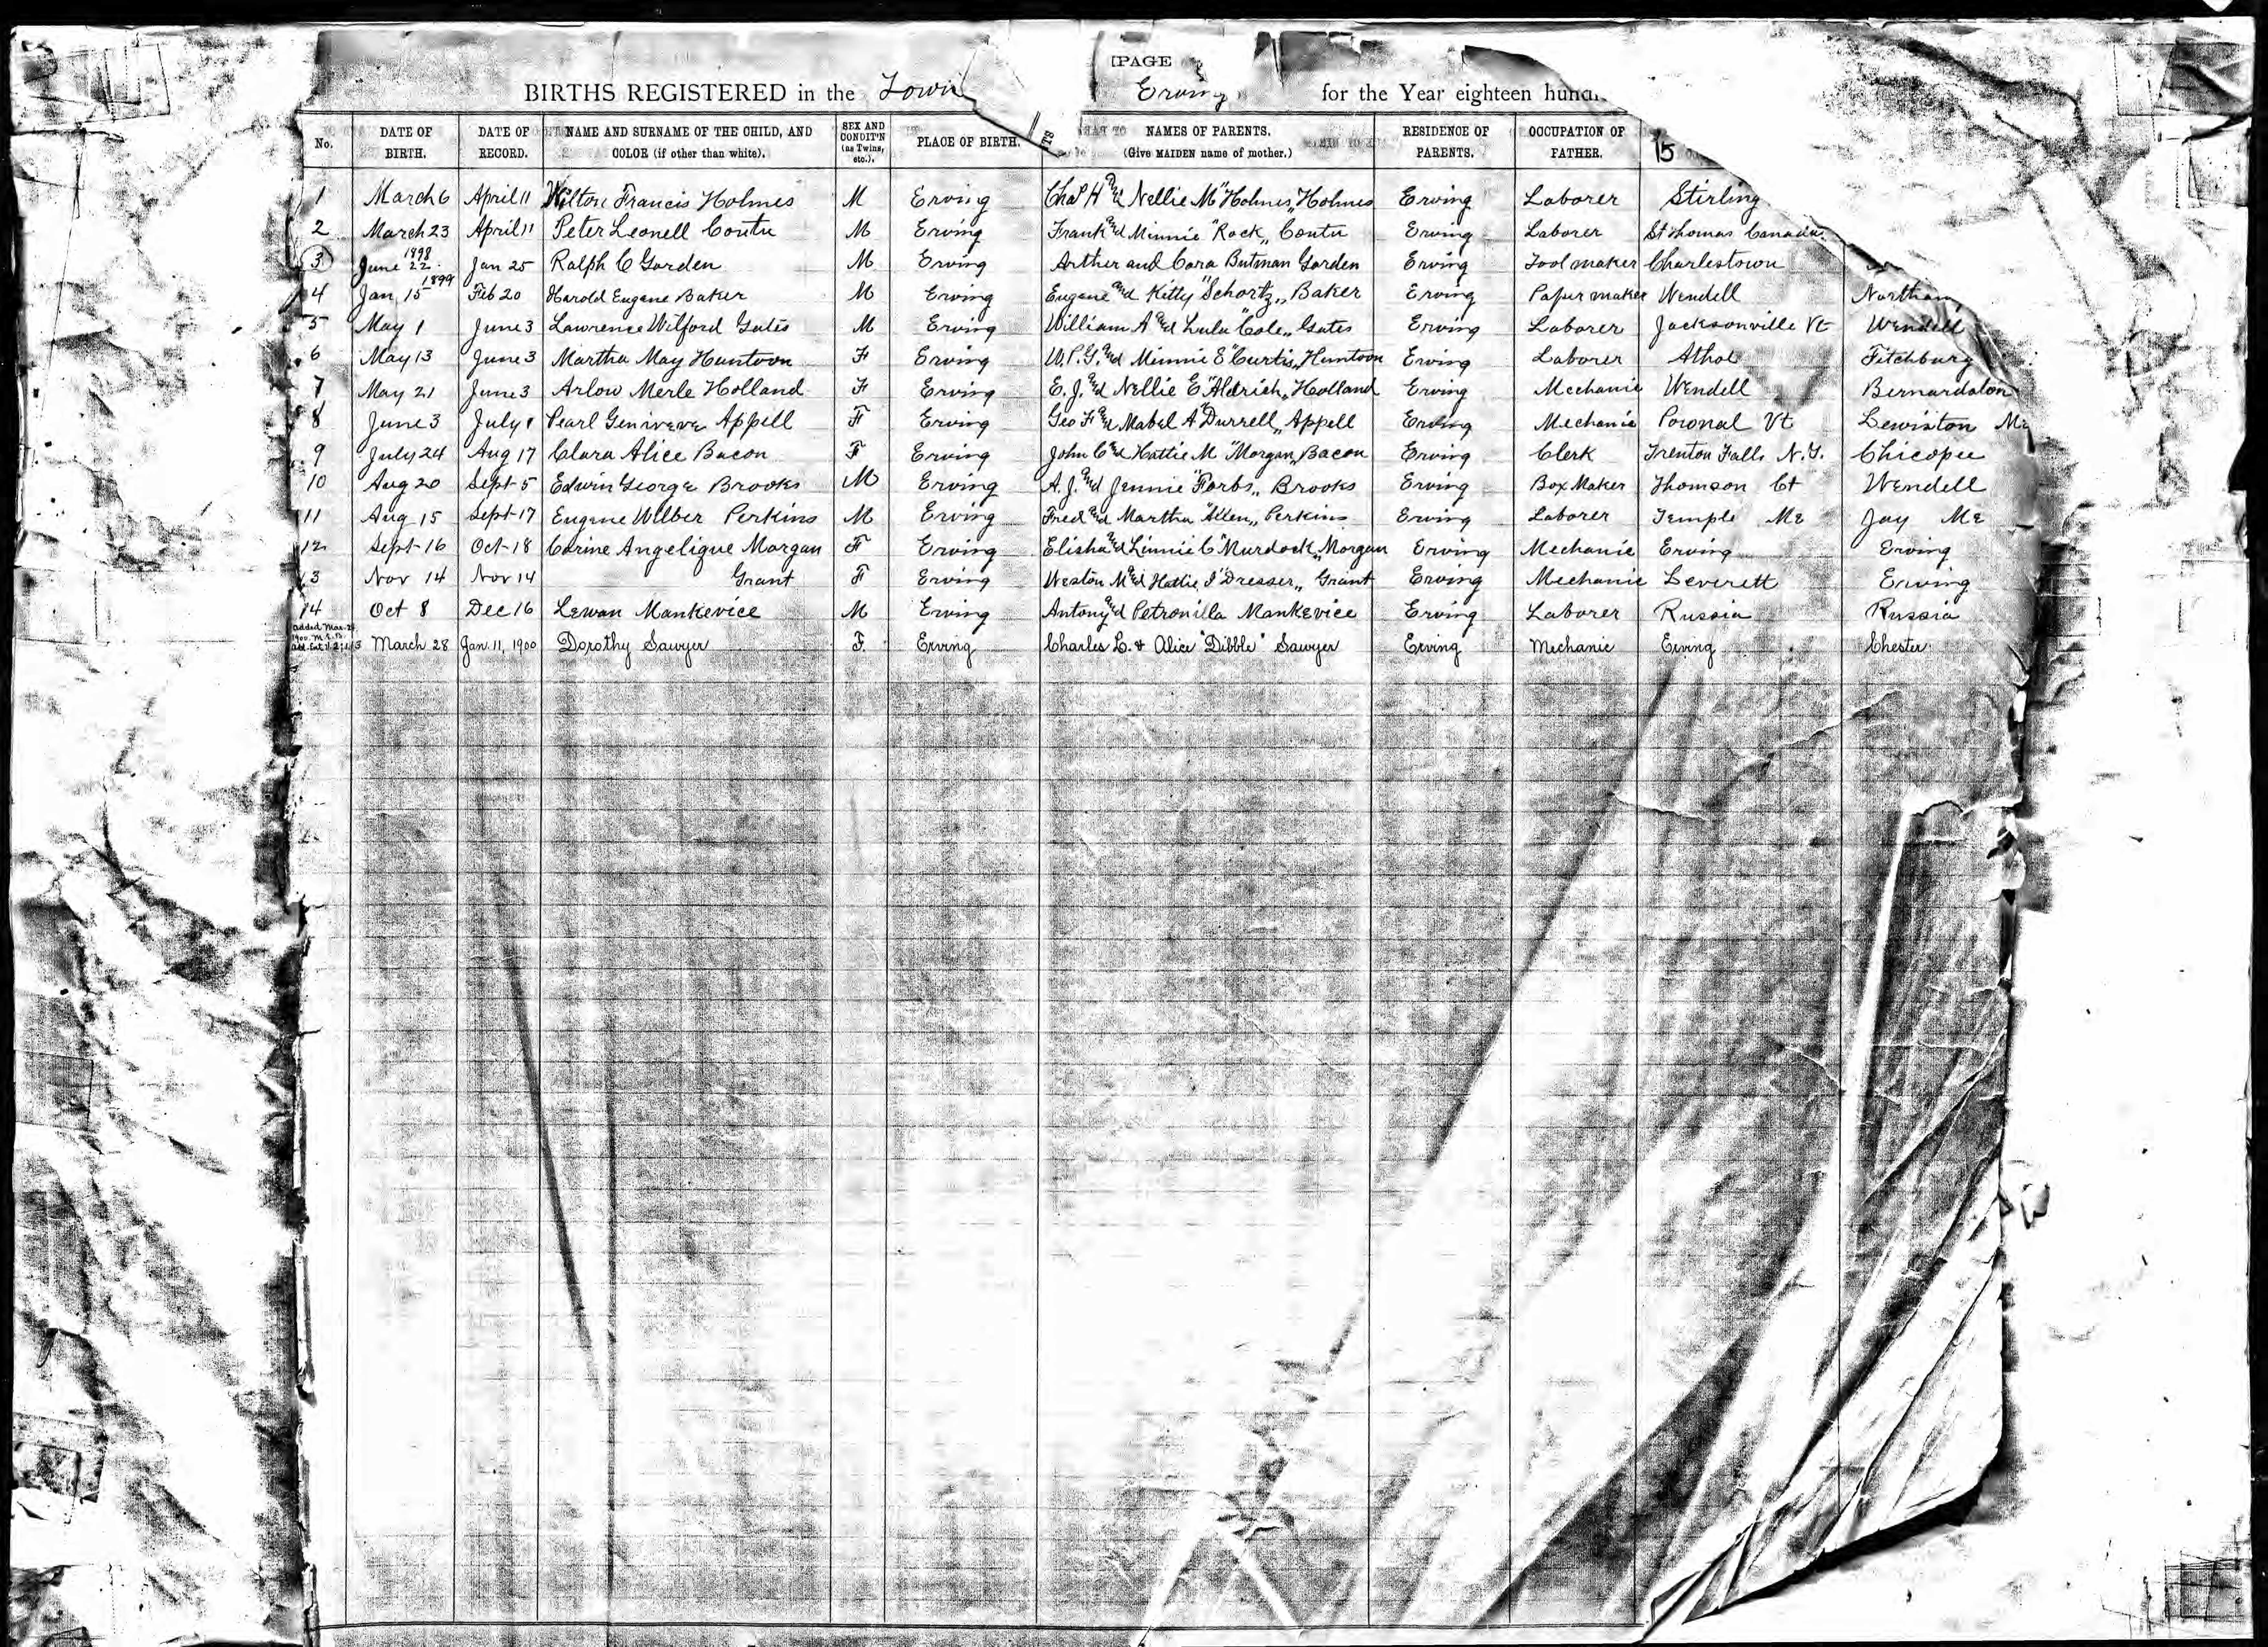 [PAGE
BIRTHS REGISTERED in the Town Erving for the Year eighteen
No. DATE OF BIRTH. DATE OF RECORD. NAME AND SURNAME OF THE CHILD, AND COLOR (if other than white). SEX AND CONDIT'N (as Twins, etc.). PLACE OF BIRTH. NAMES OF PARENTS. (Give MAIDEN name of mother.) RESIDENCE OF PARENTS. OCCUPATION OF FATHER. 15
1 March 6 April 11 Wilton Francis Holmes M Erving Chas H and Nellie M "Holmes" Holmes Erving Laborer Stirling
2 March 23 April 11 Peter Leonell Coutu M Erving Frank and Minnie "Rock" Coutu Erving Laborer St Thomas Canada
3 June 22 1898 Jan 25 Ralph C Gorden M Erving Arther and Cora Butman Gorden Erving Tool maker Charlestown
4 Jan 15 1899 Feb 20 Harold Eugene Baker M Erving Eugene and Kitty "Schortz" Baker Erving Paper maker Wendell
5 May 1 June 3 Lawrence Wilford Gates M Erving William A and Lulu "Cole" Gates Erving Laborer Jacksonville Vt Wendell
6 May 13 June 3 Martha May Huntoon F Erving W. P. G. and Minnie E "Curtis" Huntoon Erving Laborer Athol Fitchburg
7 May 21 June 3 Arlow Merle Holland F Erving E. J. and Nellie E "Aldrich" Holland Erving Mechanic Wendell Bernardston
8 June 3 July 1 Pearl Genivere Appell F Erving Geo F and Mabel A "Durrell" Appell Erving Mechanic Pownal Vt Lewiston Me
9 July 24 Aug 17 Clara Alice Bacon F Erving John C and Hattie M "Morgan" Bacon Erving Clerk Trenton Falls N.Y. Chicopee
10 Aug 20 Sept 5 Edwin George Brooks M Erving A. J. and Jennie "Forbs" Brooks Erving Box Maker Thomson Ct Wendell
11 Aug 15 Sept 17 Eugene Wilber Perkins M Erving Fred and Martha "Allen" Perkins Erving Laborer Temple Me Jay Me
12 Sept 16 Oct 18 Corine Angelique Morgan F Erving Elisha and Linnie C "Murdock" Morgan Erving Mechanic Erving Erving
13 Nov 14 Nov 14 Grant F Erving Weston M and Hattie I "Dresser" Grant Erving Mechanic Leverett Erving
14 Oct 8 Dec 16 Lewan Mankevice M Erving Antony and Petronilla Mankevice Erving Laborer Russia Russia
added Mar. 1900 March 28 Jan. 11, 1900 Dorothy Sawyer F. Erving Charles L. & Alice "Dibble" Sawyer Erving Mechanic Erving Chester